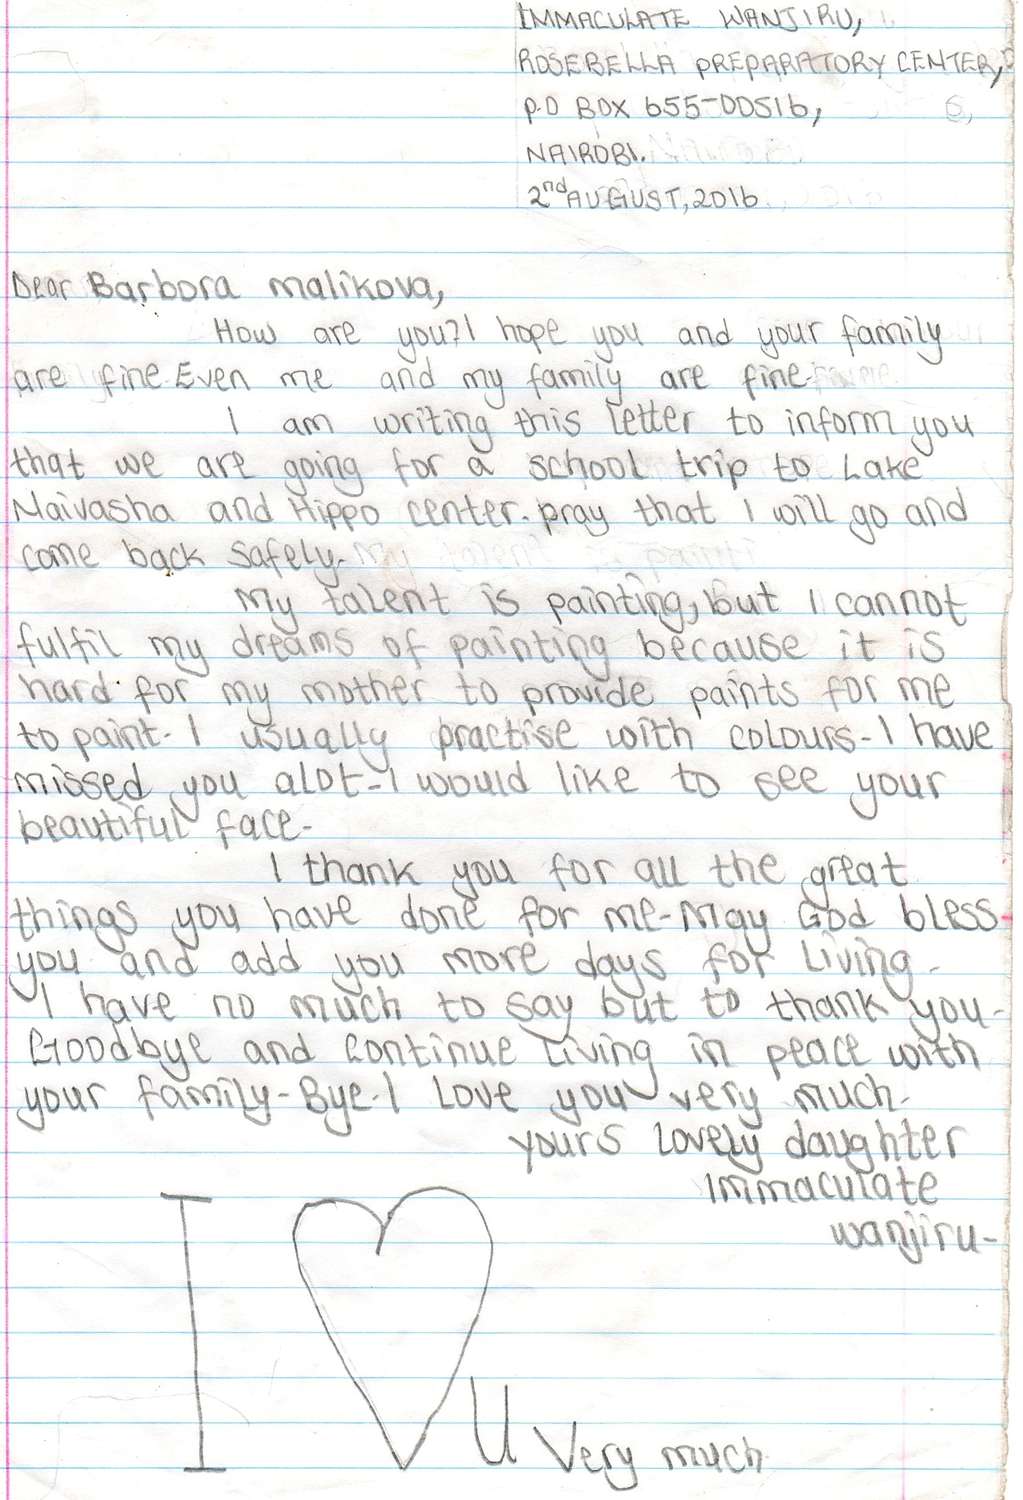 IMMACULATE WANJIRU,
ROSEBELLA PREPARATORY CENTER,
P.O BOX 655-00516,
NAIROBI.
2nd AUGUST, 2016
Dear Barbora malikova,
How are you? I hope you and your family
are fine. Even me and my family are fine.
I am writing this letter to inform you
that we are going for a school trip to Lake
Naivasha and Hippo center. pray that I will go and
come back safely.
My talent is painting, but I cannot
fulfil my dreams of painting because it is
hard for my mother to provide paints for me
to paint. I usually practise with colours. I have
missed you alot. I would like to see your
beautiful face.
I thank you for all the great
things you have done for me. May God bless
you and add you more days for living.
I have no much to say but to thank you.
Goodbye and continue living in peace with
your family. Bye. I love you very much.
yours lovely daughter
Immaculate
wanjiru.
I U very much